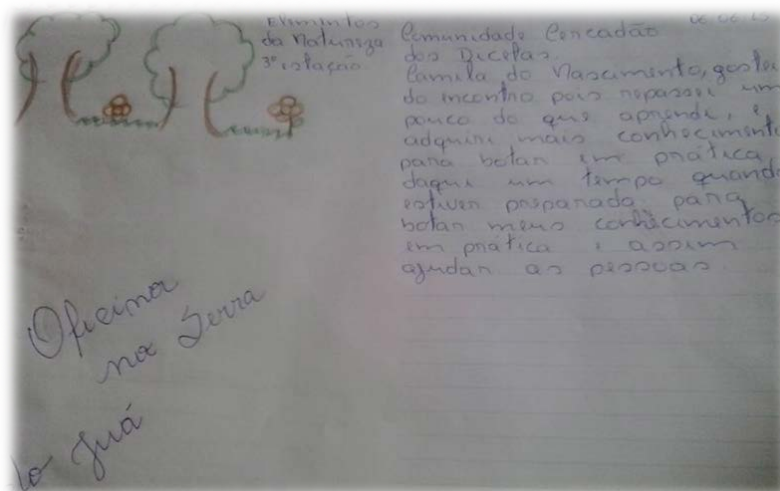 Elementos
da Natureza
3ª estação
Oficina
na Serra
do Juá
06 06 15
Comunidade Cercadão
dos Dicetas.
Camila do Nascimento, gostei
do incontro pois repassei um
pouco do que aprende, e
adquiri mais conhecimento
para botar em prática
daqui um tempo quando
estiver preparada para
botar meus conhecimentos
em prática e assim
ajudar as pessoas.